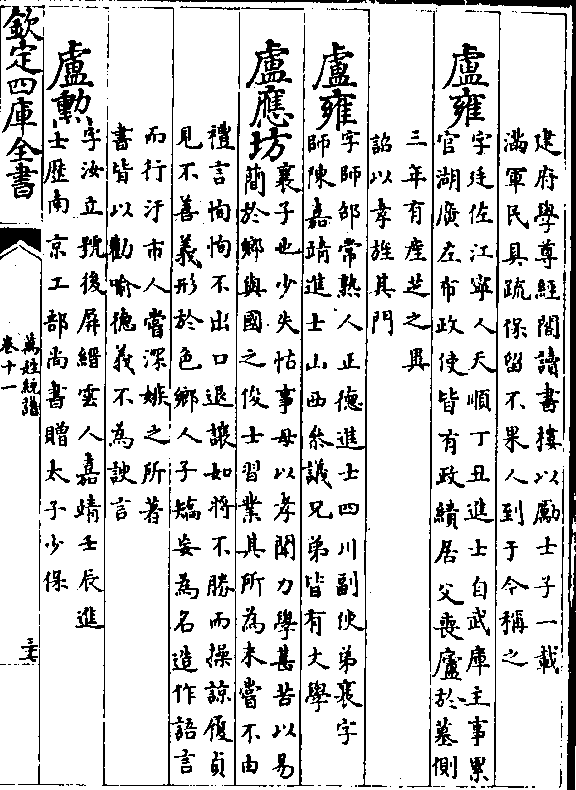 建府學尊經閣讀書樓以勵士子一載
滿軍民具疏保留不果人到于今稱之
盧雍
字廷佐江寧人天順丁丑進士自武庫主事累
官湖廣左布政使皆有政績居父喪廬於墓側
三年有産芝之異
詔以孝旌其門
盧雍
字師邵常熟人正德進士四川副使弟襄字
師陳嘉靖進士山西叅議兄弟皆有文學
盧應坊
襄子也少失怙事母以孝聞力學甚苦以易
簡於鄉與國之俊士習業其所為未嘗不由
禮言恂恂不出口退讓如將不勝而操諒履貞
見不善義形於色鄉人子矯妄為名造作語言
而行汙市人嘗深嫉之所著
書皆以勸喻德義不為諛言
盧勲
字汝立號後屏縉雲人嘉靖壬辰進
士歷南京工部尚書贈太子少保
欽定四庫全書
萬姓統譜
卷十一